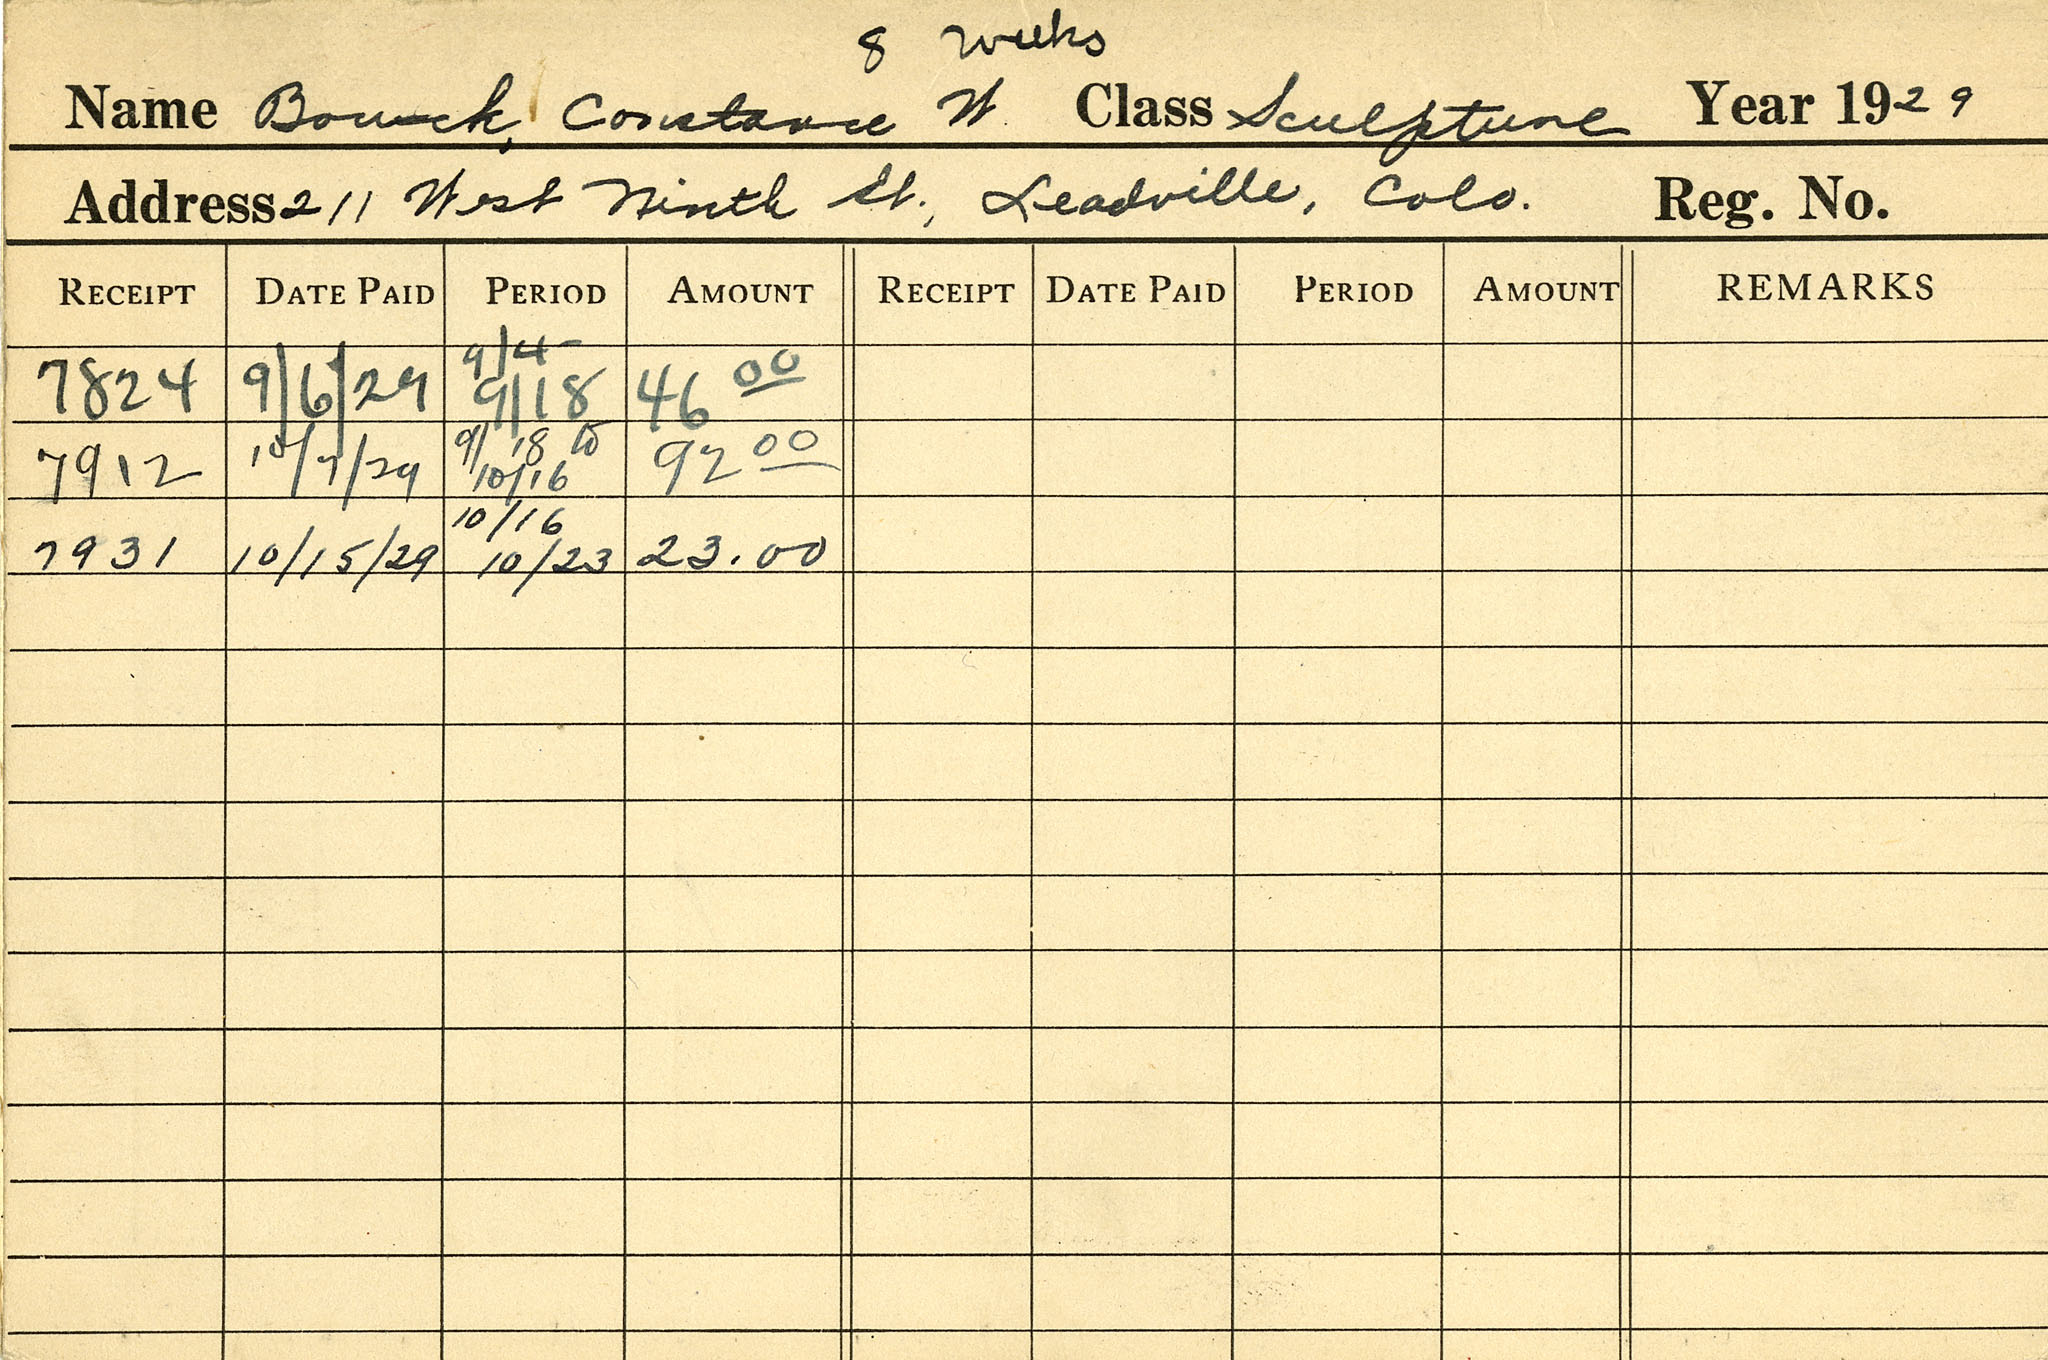 8 weeks
Name Bouck, Constance W. Class Sculpture Year 1929
Address 211 West Ninth St., Leadville, Colo. Reg. No.
RECEIPT DATE PAID PERIOD AMOUNT RECEIPT DATE PAID PERIOD AMOUNT REMARKS
9/4-
7824 9/6/29 9/18 46 00
9/18 to
7912 10/7/29 10/16 92 00
10/16
7931 10/15/29 10/23 23.00